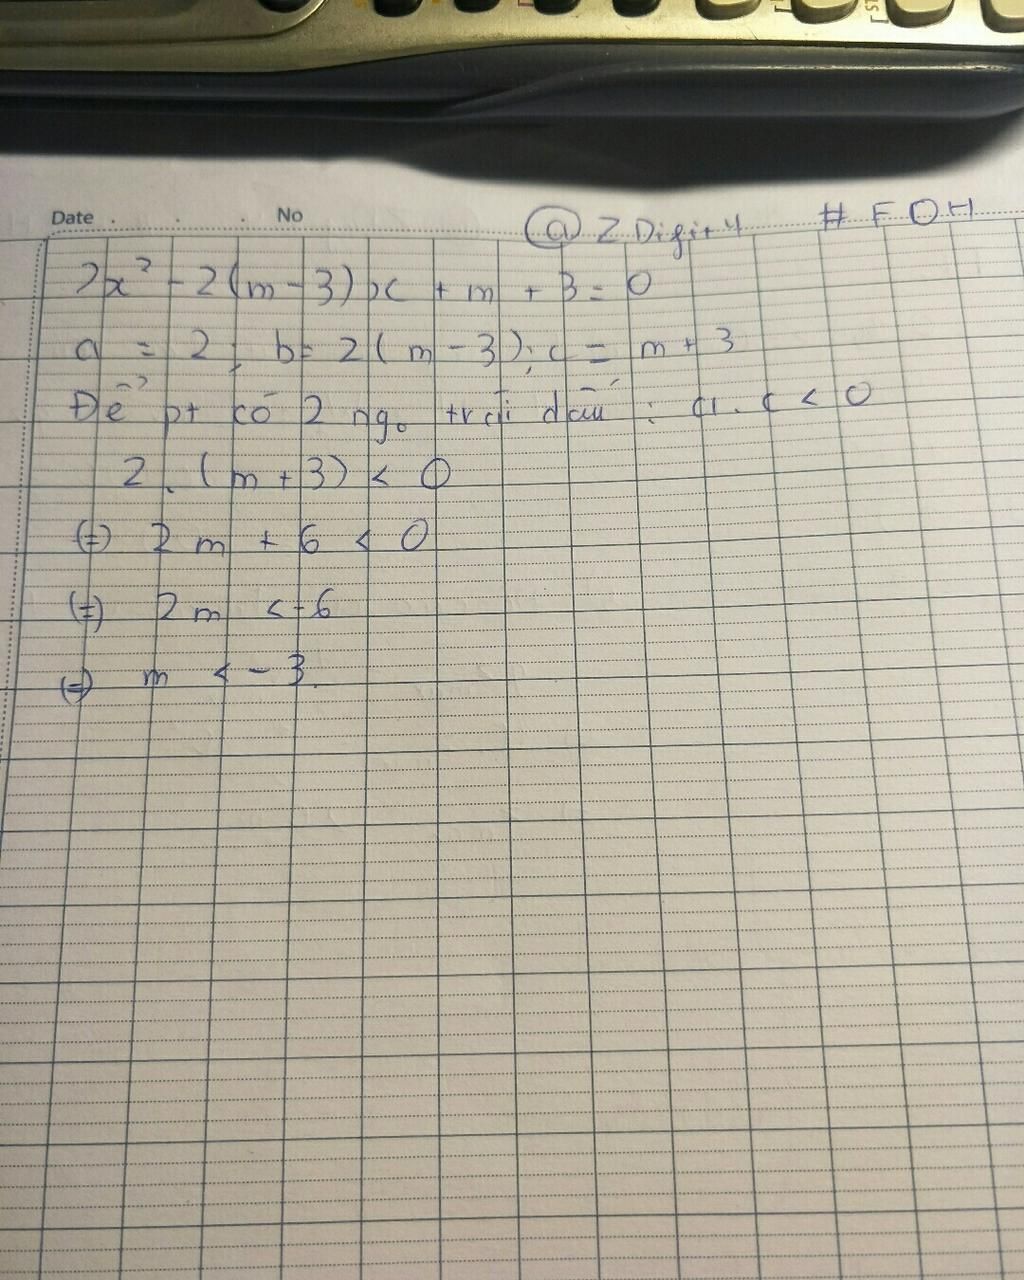 Date . . . No
@ZDigit4 # FOH
2x² - 2(m-3)x + m + 3 = 0
a = 2; b= 2(m-3); c = m+3
Để pt có 2 ngo trái dấu: a.c < 0
2.(m+3) < 0
(=) 2m + 6 < 0
(=) 2m <-6
(=) m < -3